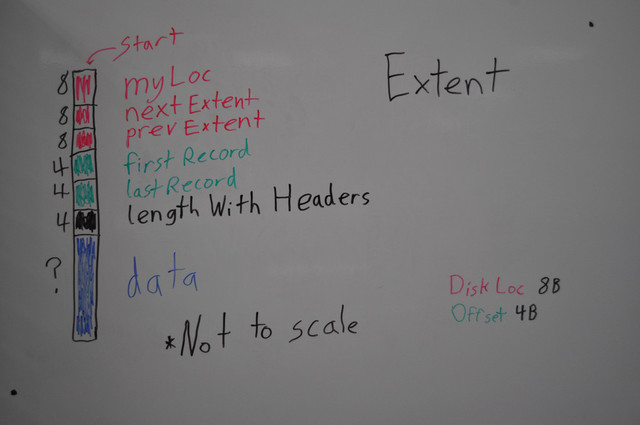 Start
Extent
8 myLoc
8 next Extent
8 prev Extent
4 first Record
4 last Record
4 length With Headers
? data
Disk Loc 8B
Offset 4B
*Not to scale